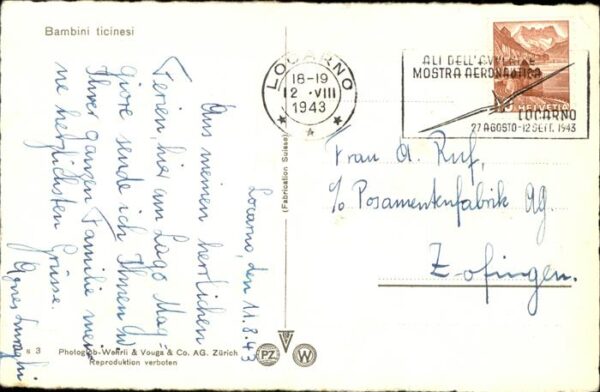 Bambini ticinesi
LOCARNO
18-19
12.VIII
1943
ALI DELL'AVVENIRE
MOSTRA AERONAUTICA
LOCARNO
27 AGOSTO-12 SETT. 1943
HELVETIA
Locarno, den 11.8.43
Aus meinen herrlichen
Ferien, hier am Lago Mag=
giore sende ich Ihnen u
Ihrer ganzen Familie mei
ne herzlichsten Grüsse.
Agnes
Frau A. Ruf,
c/o Posamentenfabrik AG.
Zofingen.
(Fabrication Suisse)
s 3
Photoglob-Wehrli & Vouga & Co. AG. Zürich
Reproduktion verboten
PZ
W